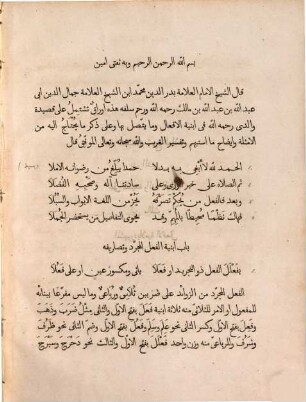 بسم الله الرحمن الرحيم وبه ثقتى امين
قال الشيخ الامام العلامة بدر الدين محمد ابن الشيخ العلامة جمال الدين ابى
عبد الله بن عبد الله بن مالك رحمه الله ورحم سلفه هذه اوراق تشتمل على قصيدة
والدى رحمه الله فى ابنية الافعال وما يتصل بها وعلى ذكر ما يحتاج اليه من
الامثلة وايضاح ما استبهم وتفسير الغريب والله سبحانه وتعالى الموفق قال
الحمد لله لا ابغى به بدلا حمدا يبلغ من رضوانه الاملا
ثم الصلاة على خير الورى وعلى ساداتنا آله وصحبه الفضلا
وبعد فالفعل من يحكم تصرفه يحز من اللغة الابواب والسبلا
فهاك نظما محيطا بالمهم وقد يحوى التفاصيل من يستحضر الجملا
باب ابنية الفعل المجرد وتصاريفه
بفعلل الفعل ذو التجريد او فعلا ياتى ومكسور عين او على فعلا
الفعل المجرد من الزوائد على ضربين ثلاثى ورباعى وما ليس مفرعا ببنائه
للمفعول او الامر للثلاثى منه ثلاثة ابنية فعل بفتح الاول والثانى مثل ضرب وذهب
وفعل بفتح الاول وكسر الثانى نحو علم وسلم وفعل بفتح الاول وضم الثانى نحو ظرف
وشرف وللرباعى منه وزن واحد فعلل بفتح الاول والثالث نحو دحرج وسبرج